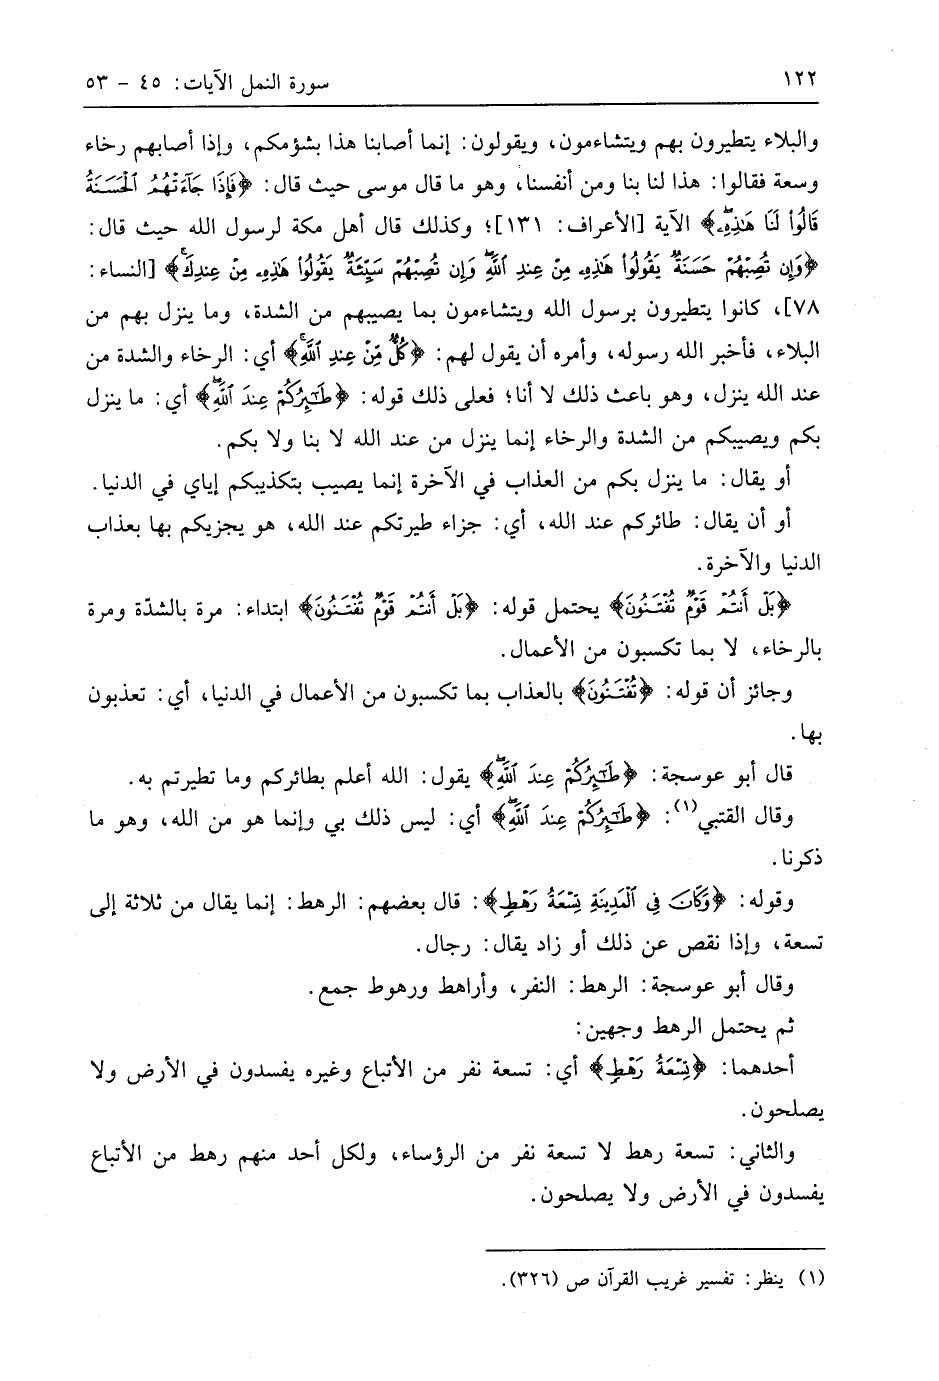 ١٢٢ سورة النمل الآيات: ٤٥ - ٥٣
والبلاء يتطيرون بهم ويتشاءمون، ويقولون: إنما أصابنا هذا بشؤمكم، وإذا أصابهم رخاء
وسعة فقالوا: هذا لنا بنا ومن أنفسنا، وهو ما قال موسى حيث قال: ﴿فَإِذَا جَآءَتْهُمُ ٱلْحَسَنَةُ
قَالُوا۟ لَنَا هَـٰذِهِۦۖ﴾ الآية [الأعراف: ١٣١]؛ وكذلك قال أهل مكة لرسول الله حيث قال:
﴿وَإِن تُصِبْهُمْ حَسَنَةٌ يَقُولُوا۟ هَـٰذِهِۦ مِنْ عِندِ ٱللَّهِۖ وَإِن تُصِبْهُمْ سَيِّئَةٌ يَقُولُوا۟ هَـٰذِهِۦ مِنْ عِندِكَۚ﴾ [النساء:
٧٨]، كانوا يتطيرون برسول الله ويتشاءمون بما يصيبهم من الشدة، وما ينزل بهم من
البلاء، فأخبر الله رسوله، وأمره أن يقول لهم: ﴿كُلٌّ مِّنْ عِندِ ٱللَّهِۚ﴾ أي: الرخاء والشدة من
عند الله ينزل، وهو باعث ذلك لا أنا؛ فعلى ذلك قوله: ﴿طَـٰٓئِرُكُمْ عِندَ ٱللَّهِۖ﴾ أي: ما ينزل
بكم ويصيبكم من الشدة والرخاء إنما ينزل من عند الله لا بنا ولا بكم.
أو يقال: ما ينزل بكم من العذاب في الآخرة إنما يصيب بتكذيبكم إياي في الدنيا.
أو أن يقال: طائركم عند الله، أي: جزاء طيرتكم عند الله، هو يجزيكم بها بعذاب
الدنيا والآخرة.
﴿بَلْ أَنتُمْ قَوْمٌ تُفْتَنُونَ﴾ يحتمل قوله: ﴿بَلْ أَنتُمْ قَوْمٌ تُفْتَنُونَ﴾ ابتداء: مرة بالشدّة ومرة
بالرخاء، لا بما تكسبون من الأعمال.
وجائز أن قوله: ﴿تُفْتَنُونَ﴾ بالعذاب بما تكسبون من الأعمال في الدنيا، أي: تعذبون
بها.
قال أبو عوسجة: ﴿طَـٰٓئِرُكُمْ عِندَ ٱللَّهِۖ﴾ يقول: الله أعلم بطائركم وما تطيرتم به.
وقال القتبي(١): ﴿طَـٰٓئِرُكُمْ عِندَ ٱللَّهِۖ﴾ أي: ليس ذلك بي وإنما هو من الله، وهو ما
ذكرنا.
وقوله: ﴿وَكَانَ فِى ٱلْمَدِينَةِ تِسْعَةُ رَهْطٍ﴾: قال بعضهم: الرهط: إنما يقال من ثلاثة إلى
تسعة، وإذا نقص عن ذلك أو زاد يقال: رجال.
وقال أبو عوسجة: الرهط: النفر، وأراهط ورهوط جمع.
ثم يحتمل الرهط وجهين:
أحدهما: ﴿تِسْعَةُ رَهْطٍ﴾ أي: تسعة نفر من الأتباع وغيره يفسدون في الأرض ولا
يصلحون.
والثاني: تسعة رهط لا تسعة نفر من الرؤساء، ولكل أحد منهم رهط من الأتباع
يفسدون في الأرض ولا يصلحون.
(١) ينظر: تفسير غريب القرآن ص (٣٢٦).